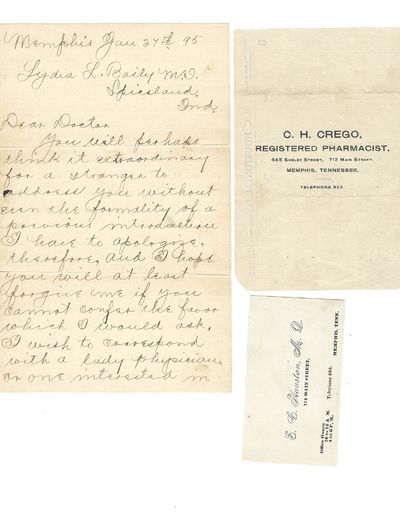 Memphis Jan 27th 95
Lydia L. Baily M.D.
Spiceland,
Ind.
Dear Doctor
You will perhaps
think it extraordinary
for a stranger to
address you without
even the formality of a
previous introduction
I have to apologize,
therefore, and I hope
you will at least
forgive me if you
cannot confer the favor
which I would ask.
I wish to correspond
with a lady physician
or one interested in
C. H. CREGO,
REGISTERED PHARMACIST.
645 SHELBY STREET, 712 MAIN STREET,
MEMPHIS, TENNESSEE.
TELEPHONE 923.
E. E. Houston, M. D.
714 MAIN STREET,
MEMPHIS, TENN.
Office Hours
A. M.
4 to 6 P. M.
Telephone